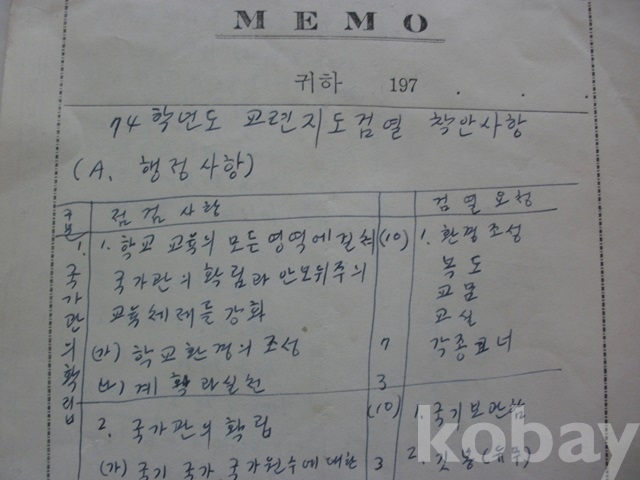 MEMO
귀하 197 . . .
74학년도 교련지도검열 착안사항
(A. 행정사항)
점검사항 검열요청
1. 국가관의확립
1. 학교 교육의 모든영역에걸쳐 (10) 1. 환경조성
국가관의 확립과 안보위주의 복도
교육체제를 강화 교문
교실
(가) 학교환경의 조성 7 각종코너
나) 계획과실천 3
2. 국가관의 확립 (10) 1. 국기보관함
(가) 국기 국가 국가원수에대한 3 2. 깃봉
kobay